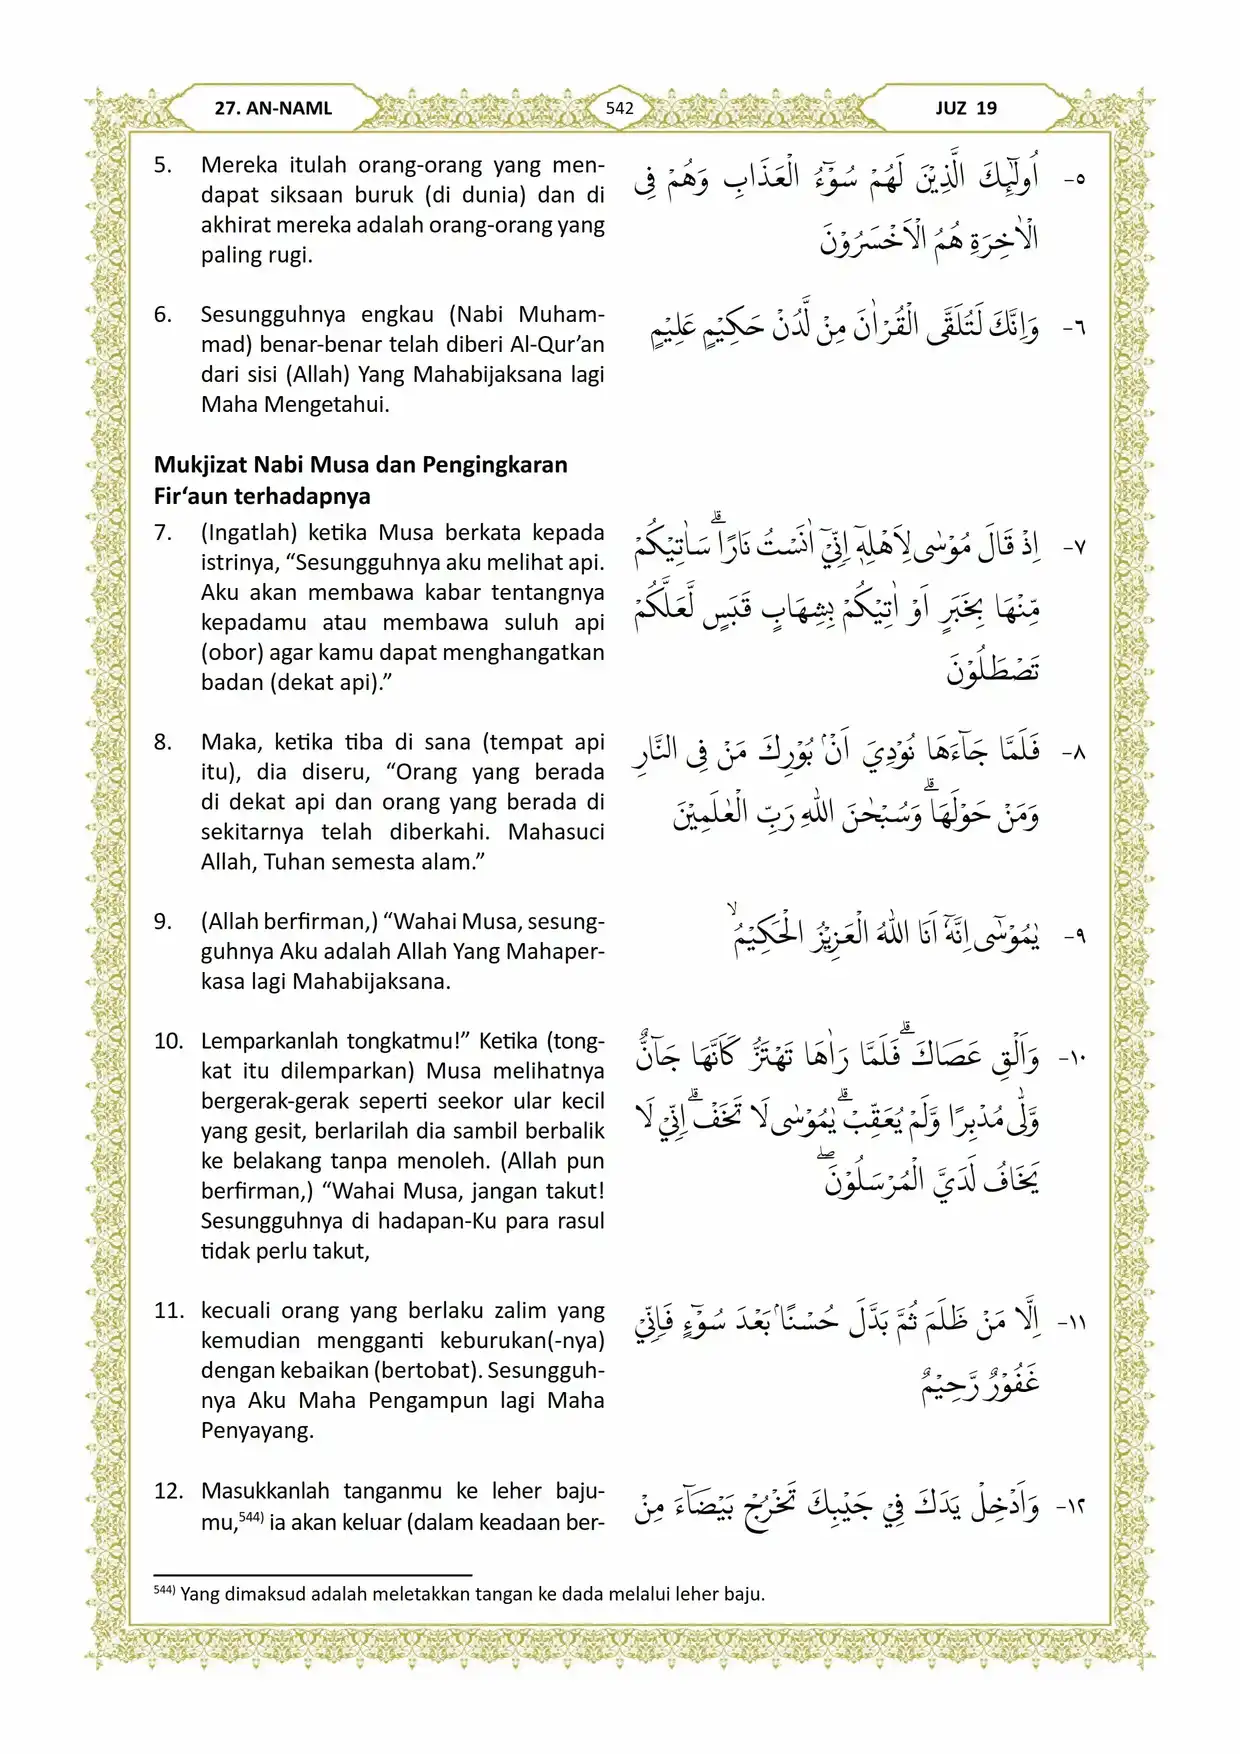 27. AN-NAML
542
JUZ 19
5. Mereka itulah orang-orang yang men-
dapat siksaan buruk (di dunia) dan di
akhirat mereka adalah orang-orang yang
paling rugi.
٥- اُولٰۤىِٕكَ الَّذِيْنَ لَهُمْ سُوْۤءُ الْعَذَابِ وَهُمْ فِى
الْاٰخِرَةِ هُمُ الْاَخْسَرُوْنَ
6. Sesungguhnya engkau (Nabi Muham-
mad) benar-benar telah diberi Al-Qur’an
dari sisi (Allah) Yang Mahabijaksana lagi
Maha Mengetahui.
٦- وَاِنَّكَ لَتُلَقَّى الْقُرْاٰنَ مِنْ لَّدُنْ حَكِيْمٍ عَلِيْمٍ
Mukjizat Nabi Musa dan Pengingkaran
Fir‘aun terhadapnya
7. (Ingatlah) ketika Musa berkata kepada
istrinya, “Sesungguhnya aku melihat api.
Aku akan membawa kabar tentangnya
kepadamu atau membawa suluh api
(obor) agar kamu dapat menghangatkan
badan (dekat api).”
٧- اِذْ قَالَ مُوْسٰى لِاَهْلِهٖٓ اِنِّيْٓ اٰنَسْتُ نَارًاۗ سَاٰتِيْكُمْ
مِّنْهَا بِخَبَرٍ اَوْ اٰتِيْكُمْ بِشِهَابٍ قَبَسٍ لَّعَلَّكُمْ
تَصْطَلُوْنَ
8. Maka, ketika tiba di sana (tempat api
itu), dia diseru, “Orang yang berada
di dekat api dan orang yang berada di
sekitarnya telah diberkahi. Mahasuci
Allah, Tuhan semesta alam.”
٨- فَلَمَّا جَاۤءَهَا نُوْدِيَ اَنْۢ بُوْرِكَ مَنْ فِى النَّارِ
وَمَنْ حَوْلَهَاۗ وَسُبْحٰنَ اللّٰهِ رَبِّ الْعٰلَمِيْنَ
9. (Allah berfirman,) “Wahai Musa, sesung-
guhnya Aku adalah Allah Yang Mahaper-
kasa lagi Mahabijaksana.
٩- يٰمُوْسٰٓى اِنَّهٗٓ اَنَا اللّٰهُ الْعَزِيْزُ الْحَكِيْمُۙ
10. Lemparkanlah tongkatmu!” Ketika (tong-
kat itu dilemparkan) Musa melihatnya
bergerak-gerak seperti seekor ular kecil
yang gesit, berlarilah dia sambil berbalik
ke belakang tanpa menoleh. (Allah pun
berfirman,) “Wahai Musa, jangan takut!
Sesungguhnya di hadapan-Ku para rasul
tidak perlu takut,
١٠- وَاَلْقِ عَصَاكَۗ فَلَمَّا رَاٰهَا تَهْتَزُّ كَاَنَّهَا جَاۤنٌّ
وَّلّٰى مُدْبِرًا وَّلَمْ يُعَقِّبْۗ يٰمُوْسٰى لَا تَخَفْۗ اِنِّيْ لَا
يَخَافُ لَدَيَّ الْمُرْسَلُوْنَۖ
11. kecuali orang yang berlaku zalim yang
kemudian mengganti keburukan(-nya)
dengan kebaikan (bertobat). Sesungguh-
nya Aku Maha Pengampun lagi Maha
Penyayang.
١١- اِلَّا مَنْ ظَلَمَ ثُمَّ بَدَّلَ حُسْنًاۢ بَعْدَ سُوْۤءٍ فَاِنِّيْ
غَفُوْرٌ رَّحِيْمٌ
12. Masukkanlah tanganmu ke leher baju-
mu,⁵⁴⁴⁾ ia akan keluar (dalam keadaan ber-
١٢- وَاَدْخِلْ يَدَكَ فِيْ جَيْبِكَ تَخْرُجْ بَيْضَاۤءَ مِنْ
⁵⁴⁴⁾ Yang dimaksud adalah meletakkan tangan ke dada melalui leher baju.